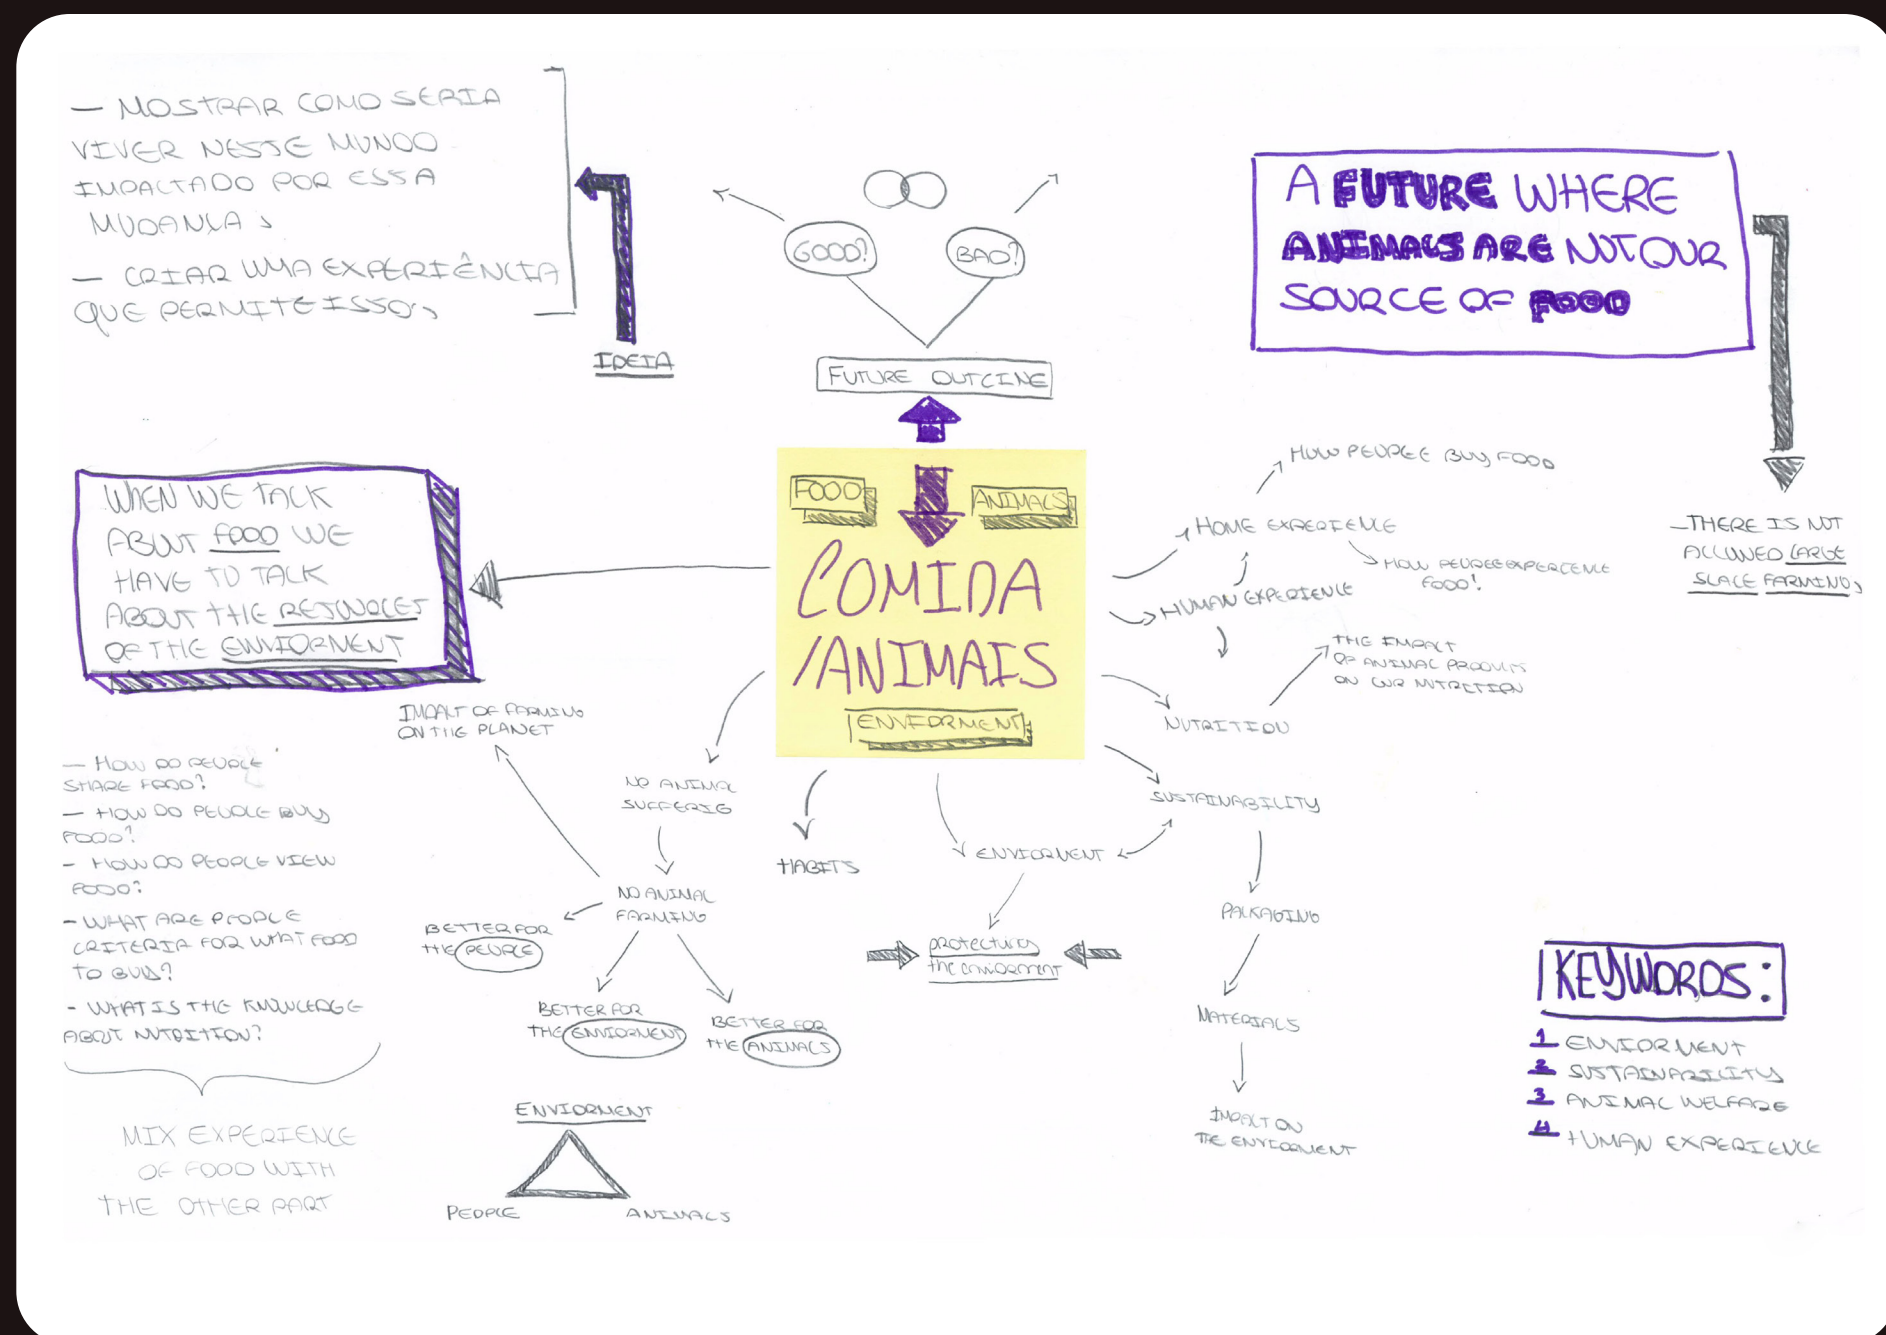 — MOSTRAR COMO SERIA
VIVER NESSE MUNDO
IMPACTADO POR ESSA
MUDANÇA
— CRIAR UMA EXPERIÊNCIA
QUE PERMITE ISSO
IDEIA
GOOD?
BAD?
FUTURE OUTCINE
A FUTURE WHERE
ANIMALS ARE NOT OUR
SOURCE OF FOOD
— THERE IS NOT
ALLOWED LARGE
SLACE FARMING
WHEN WE TALK
ABOUT FOOD WE
HAVE TO TALK
ABOUT THE RESOURCES
OF THE ENVIORMENT
FOOD
ANIMALS
COMIDA
/ANIMAIS
ENVIORMENT
HOW PEOPLE BUY FOOD
HOME EXPERIENCE
HOW PEOPLE EXPERCENCE
FOOD!
HUMAN EXPERIENCE
THE IMPACT
OF ANIMAL PRODUCTS
ON OUR NUTRITION
NUTRITION
SUSTAINABILITY
PACKAGING
MATERIALS
IMPACT ON
THE ENVIORMENT
ENVIORMENT
protecting
the enviorment
HABITS
NO ANIMAL
SUFFERIG
NO ANIMAL
FARMING
IMPACT OF FARMING
ON THE PLANET
BETTER FOR
THE PEOPLE
BETTER FOR
THE ENVIORMENT
BETTER FOR
THE ANIMALS
— HOW DO PEOPLE
SHARE FOOD?
— HOW DO PEOPLE BUY
FOOD?
- HOW DO PEOPLE VIEW
FOOD?
- WHAT ARE PEOPLE
CRITERIA FOR WHAT FOOD
TO BUY?
- WHAT IS THE KNOWLEDGE
ABOUT NUTRITION?
MIX EXPERIENCE
OF FOOD WITH
THE OTHER PART
ENVIORMENT
PEOPLE
ANIMALS
KEYWORDS:
1 ENVIORMENT
2 SUSTAINABILITY
3 ANIMAL WELFARE
4 HUMAN EXPERIENCE